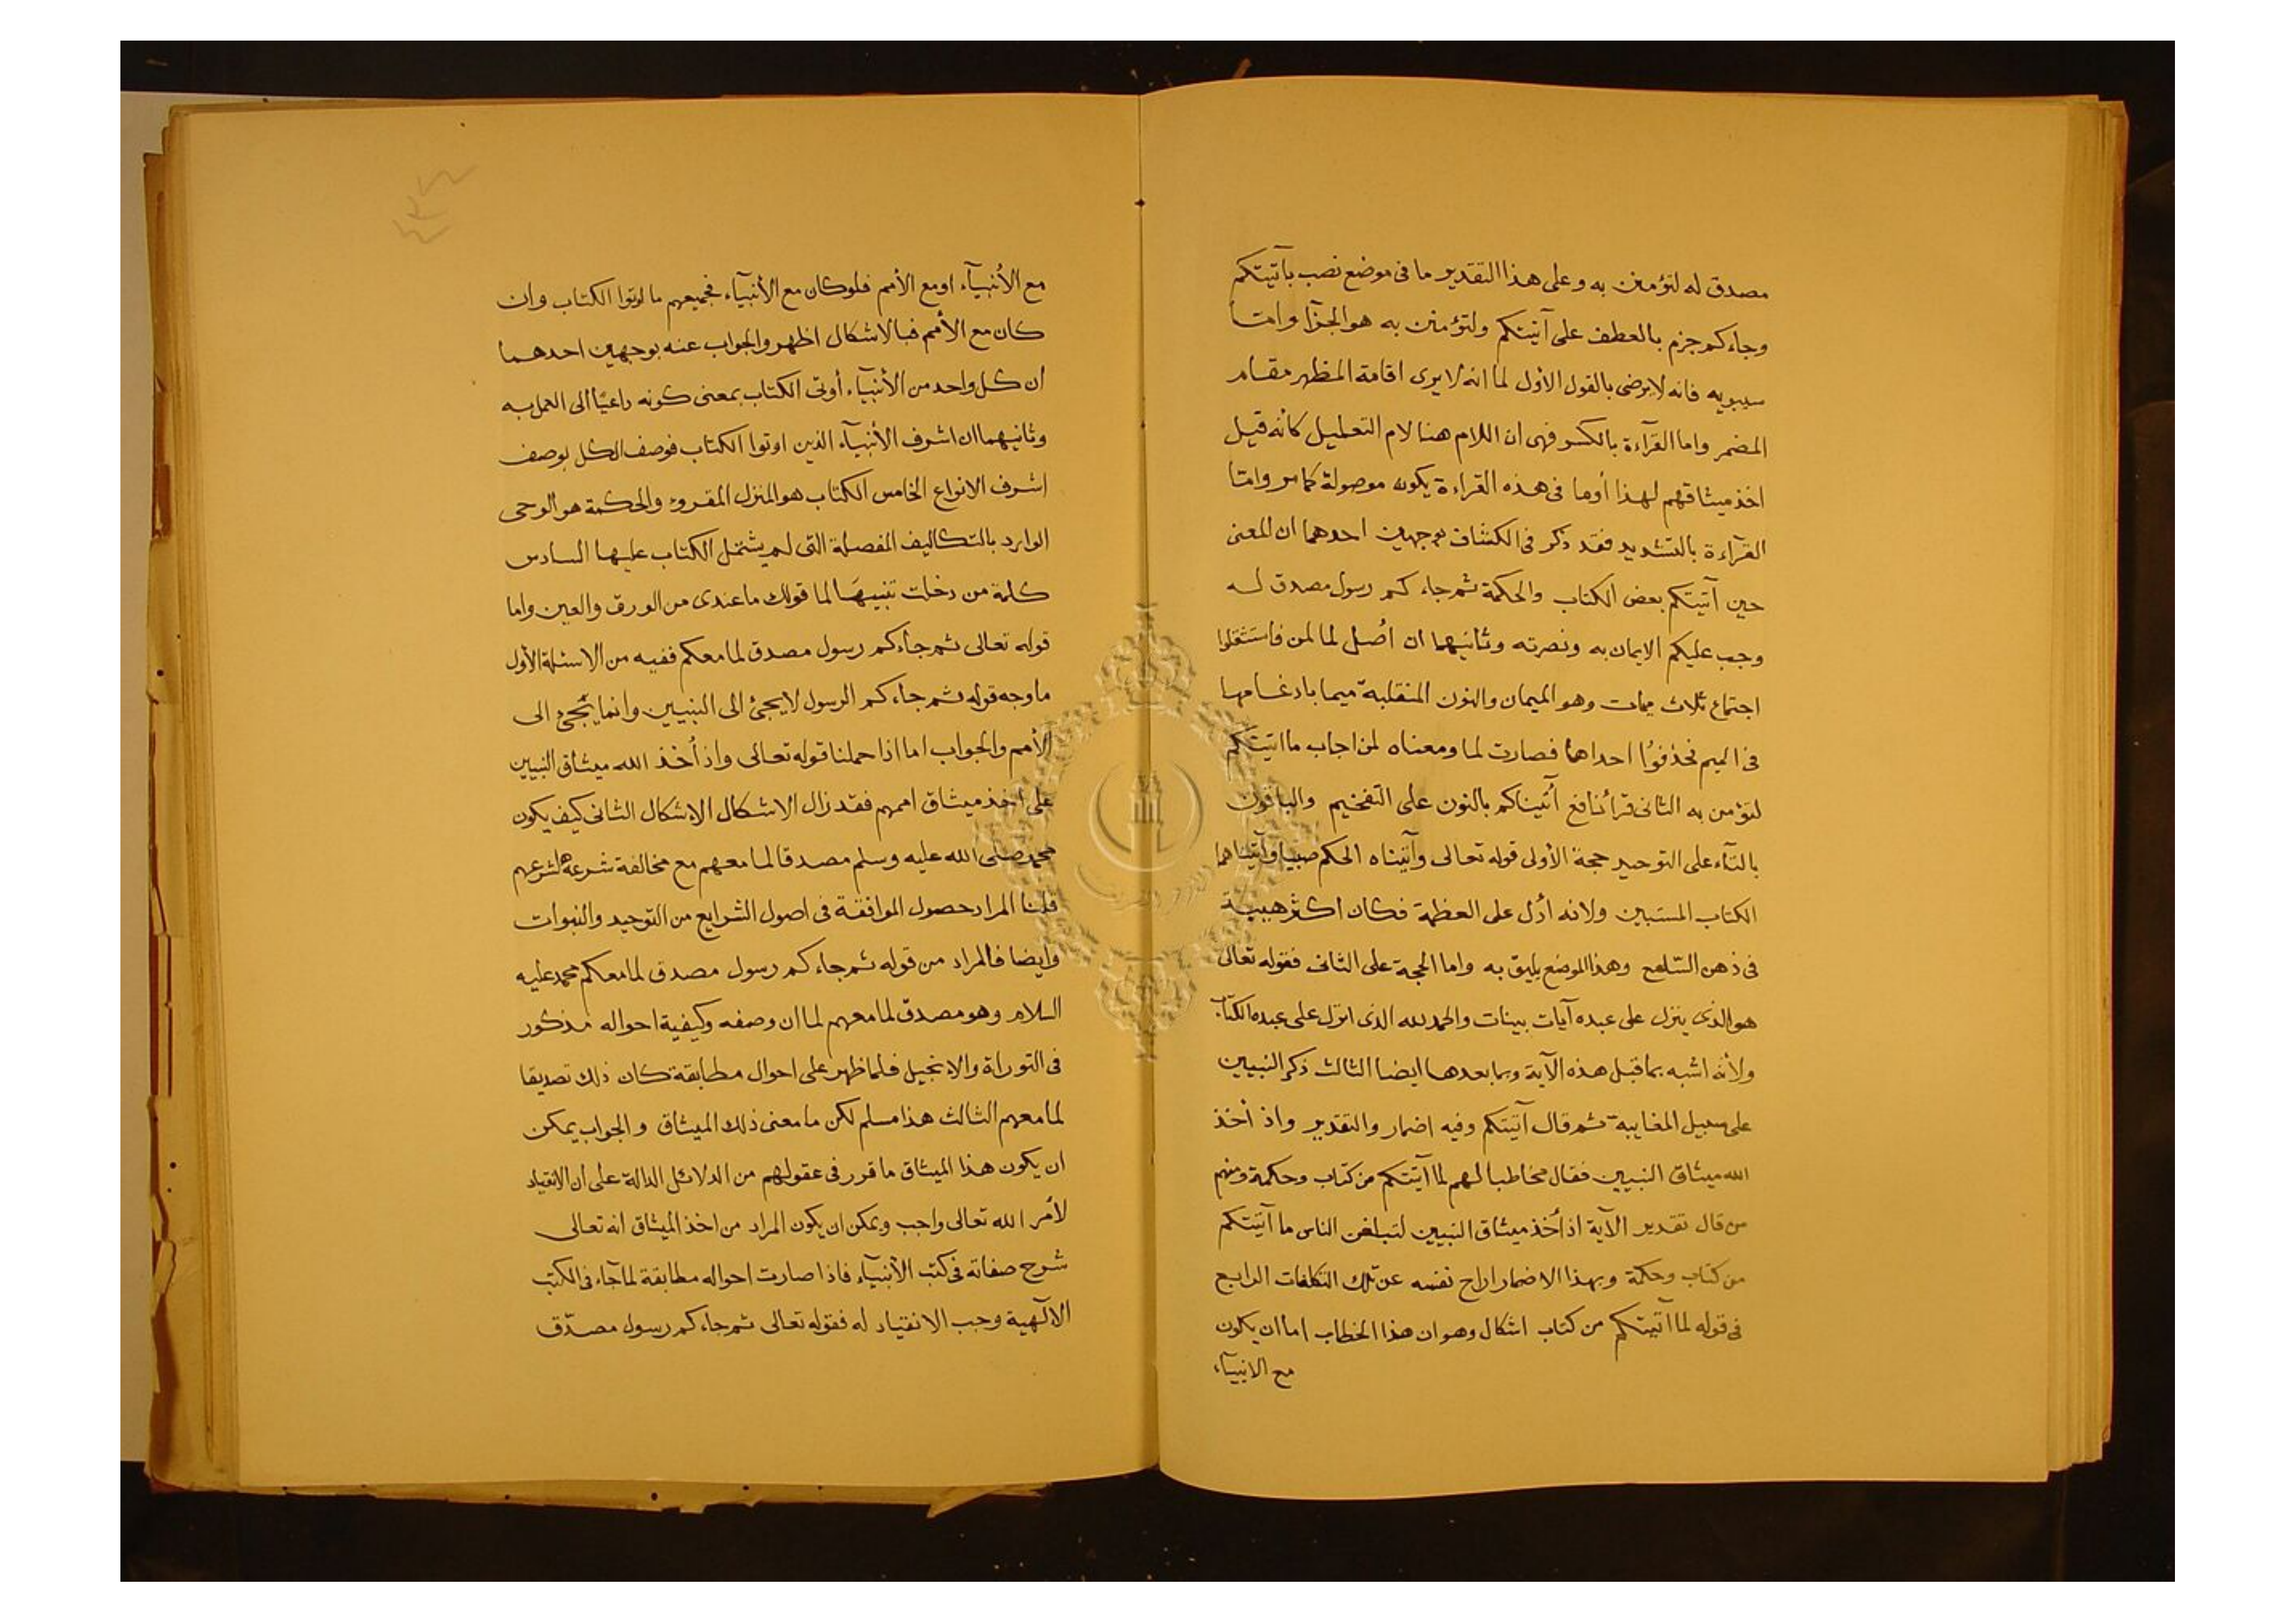 مصدق له لتؤمنن به وعلى هذا التقدير ما فى موضع نصب بآتيتكم
وجاءكم جزم بالعطف على آتيتكم ولتؤمنن به هو الجزآ واما
سيبويه فانه لا يرضى بالقول الأول لما انه لا يرى اقامة المظهر مقام
المضمر واما القرآءة بالكسر فهى ان اللام هنا لام التعليل كانه قيل
اخذ ميثاقهم لهذا أوما فى هذه القراءة يكون موصولة كما مر واما
القرآءة بالتشديد فقد ذكر فى الكشاف بوجهين احدهما ان المعنى
حين آتيتكم بعض الكتاب والحكمة ثم جاء كم رسول مصدق له
وجب عليكم الايمان به ونصرته وثانيهما ان أصل لما لمن فاستثقلوا
اجتماع ثلاث ميمات وهو الميمان والنون المنقلبة ميما بادغامها
فى الميم فحذفوا احداها فصارت لما ومعناه لمن اجاب ما اتيتكم
لتؤمن به الثانى قرأ نافع أتيناكم بالنون على التفخيم والباقون
بالتآء على التوحيد حجة الأولى قوله تعالى وآتيناه الحكم صبيا وآتيناهما
الكتاب المستبين ولانه أدل على العظمة فكان اكثر هيبة
فى ذهن السامع وهذا الموضع يليق به واما الحجة على الثانى فقوله تعالى
هو الذى ينزل على عبده آيات بينات والحمد لله الذى انزل على عبده الكتاب
ولأنه اشبه بما قبل هذه الآية وبما بعدها ايضا الثالث ذكر النبيين
على سبيل المغايبة ثم قال آتيتكم وفيه اضمار والتقدير واذ أخذ
الله ميثاق النبيين فقال مخاطبا لهم لما آتيتكم من كتاب وحكمة ومنهم
من قال تقدير الآية اذ أخذ ميثاق النبيين لتبلغن الناس ما آتيتكم
من كتاب وحكمة وبهذا الاضمار اراح نفسه عن تلك التكلفات الرابع
فى قوله لما آتيتكم من كتاب اشكال وهو ان هذا الخطاب اما ان يكون
مع الانبيآء
مع الأنبيآء او مع الأمم فلو كان مع الأنبيآء فجميعهم ما اوتوا الكتاب وان
كان مع الأمم فبالاشكال اظهر والجواب عنه بوجهين احدهما
ان كل واحد من الأنبيآء أوتى الكتاب بمعنى كونه داعيًا الى العمل به
وثانيهما ان اشرف الأنبيآء الذين اوتوا الكتاب فوصف الكل بوصف
اشرف الانواع الخامس الكتاب هو المنزل المقروء والحكمة هو الوحى
الوارد بالتكاليف المفصلة التى لم يشتمل الكتاب عليها السادس
كلمة من دخلت تنبيهًا لما قولك ما عندى من الورق والعين واما
قوله تعالى ثم جاءكم رسول مصدق لما معكم ففيه من الاسئلة الأول
ما وجه قوله ثم جاء كم الرسول لا يجئ الى النبيين وانما يجئ الى
الأمم والجواب اما اذا حملنا قوله تعالى واذ أخذ الله ميثاق النبيين
على أخذ ميثاق اممهم فقد زال الاشكال الاشكال الثانى كيف يكون
محمد صلى الله عليه وسلم مصدقا لما معهم مع مخالفة شرعه لشرعهم
قلنا المراد حصول الموافقة فى اصول الشرايع من التوحيد والنبوات
وايضا فالمراد من قوله ثم جاء كم رسول مصدق لما معكم محمد عليه
السلام وهو مصدق لما معهم لما ان وصفه وكيفية احواله مذكور
فى التوراة والانجيل فلما ظهر على احوال مطابقة كان ذلك تصديقا
لما معهم الثالث هذا مسلم لكن ما معنى ذلك الميثاق والجواب يمكن
ان يكون هذا الميثاق ما قرر فى عقولهم من الدلائل الدالة على ان الانقياد
لأمر الله تعالى واجب ويمكن ان يكون المراد من اخذ الميثاق انه تعالى
شرح صفاته فى كتب الأنبيآء فاذا صارت احواله مطابقة لما جآء فى الكتب
الالٓهية وجب الانقياد له فقوله تعالى ثم جاء كم رسول مصدّق